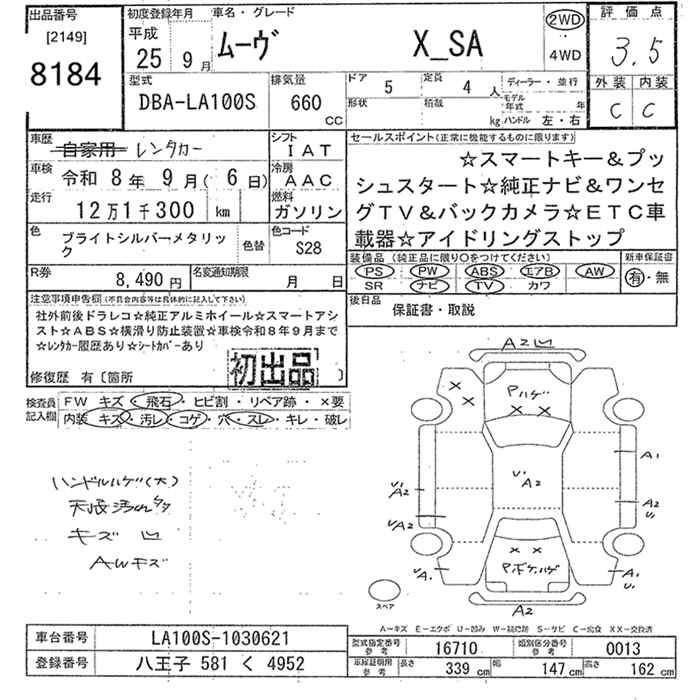 出品番号
[2149]
8184
初度登録年月
平成
25 9月
車名・グレード
ムーヴ X_SA
2WD
4WD
評価点
3.5
外装 内装
C C
型式
DBA-LA100S
排気量
660 CC
ドア 5
定員 4 人
形状
積載 kg
ディーラー・並行
モデル年式 年
ハンドル 左・右
車歴
自家用 レンタカー
シフト
IAT
車検
令和 8年 9月( 6日)
冷房
AAC
走行
12万1千300 km
燃料
ガソリン
色
ブライトシルバーメタリック
色替
色コード
S28
R券
8,490円
名変通知期限
月 日
セールスポイント(正常に機能するものに限ります)
☆スマートキー&プッ
シュスタート☆純正ナビ&ワンセ
グTV&バックカメラ☆ETC車
載器☆アイドリングストップ
装備品 (純正品に限り○をつけてください)
新車保証書
PS PW ABS エアB AW
SR ナビ TV カワ
有・無
後日品
保証書・取説
注意事項申告欄(不具合内容等は具体的に記入して下さい)
社外前後ドラレコ☆純正アルミホイール☆スマートアシ
スト☆ABS☆横滑り防止装置☆車検令和8年9月まで
☆レンタカー履歴あり☆シートカバーあり
初出品
修復歴 有〔箇所 〕
検査員記入欄
FW キズ・飛石・ヒビ割・リペア跡・×要
内装 キズ・汚レ・コゲ・穴・スレ・キレ・破レ
ハンドルハゲ(大)
天張汚れ多
キズ 凹
AWキズ
A2凹
Pハゲ
A1
U'
A2
U'
A2
U'A2
A2
U'
U'A1
A1
Pボケハゲ
A2
スペア
A－キズ E－エクボ U－凹み W－補修跡 S－サビ C－腐食 XX－交換済
車台番号
LA100S-1030621
登録番号
八王子 581 く 4952
型式指定番号
参考
16710
類別区分番号
参考
0013
車検証明用
参考
長さ 339 cm
幅 147 cm
高さ 162 cm